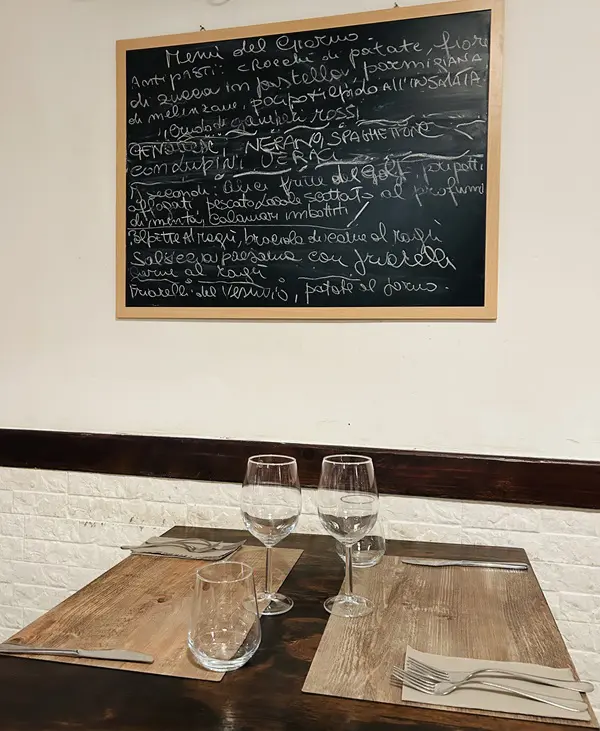 Menù del Giorno.
Antipasti: crocchè di patate, fiore
di zucca in pastella, parmigiana
di melanzane, polipo tiepido all'insalata
crudo di gamberi rossi
GENOVESE, NERANO, SPAGHETTONE
con lupini VERACI
I secondi: Alici fritte del Golfo, polipetti
affogati pescato locale scottato al profumo
di menta, calamari imbottiti
Polpette Al ragù, braciola di carne al ragù
Salsiccia paesana con friarielli
carne al ragù
Friarielli del Vesuvio, patate al forno.